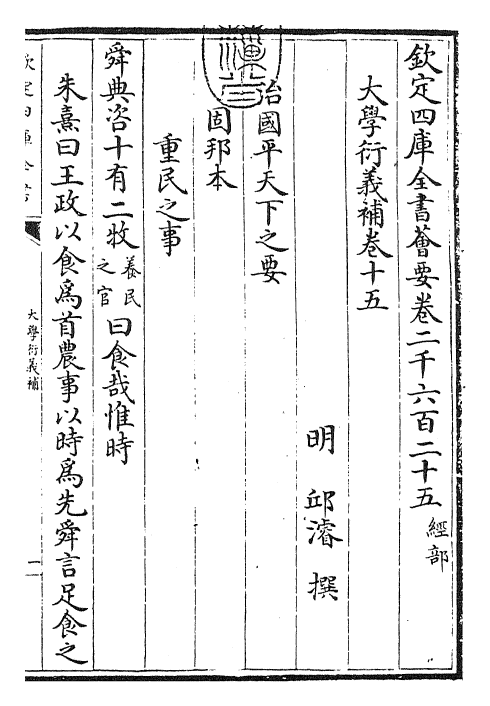 欽定四庫全書薈要卷二千六百二十五 經部
大學衍義補卷十五
明 邱濬 撰
治國平天下之要
固邦本
重民之事
舜典咨十有二牧養民之官曰食哉惟時
朱熹曰王政以食為首農事以時為先舜言足食之
大學衍義補